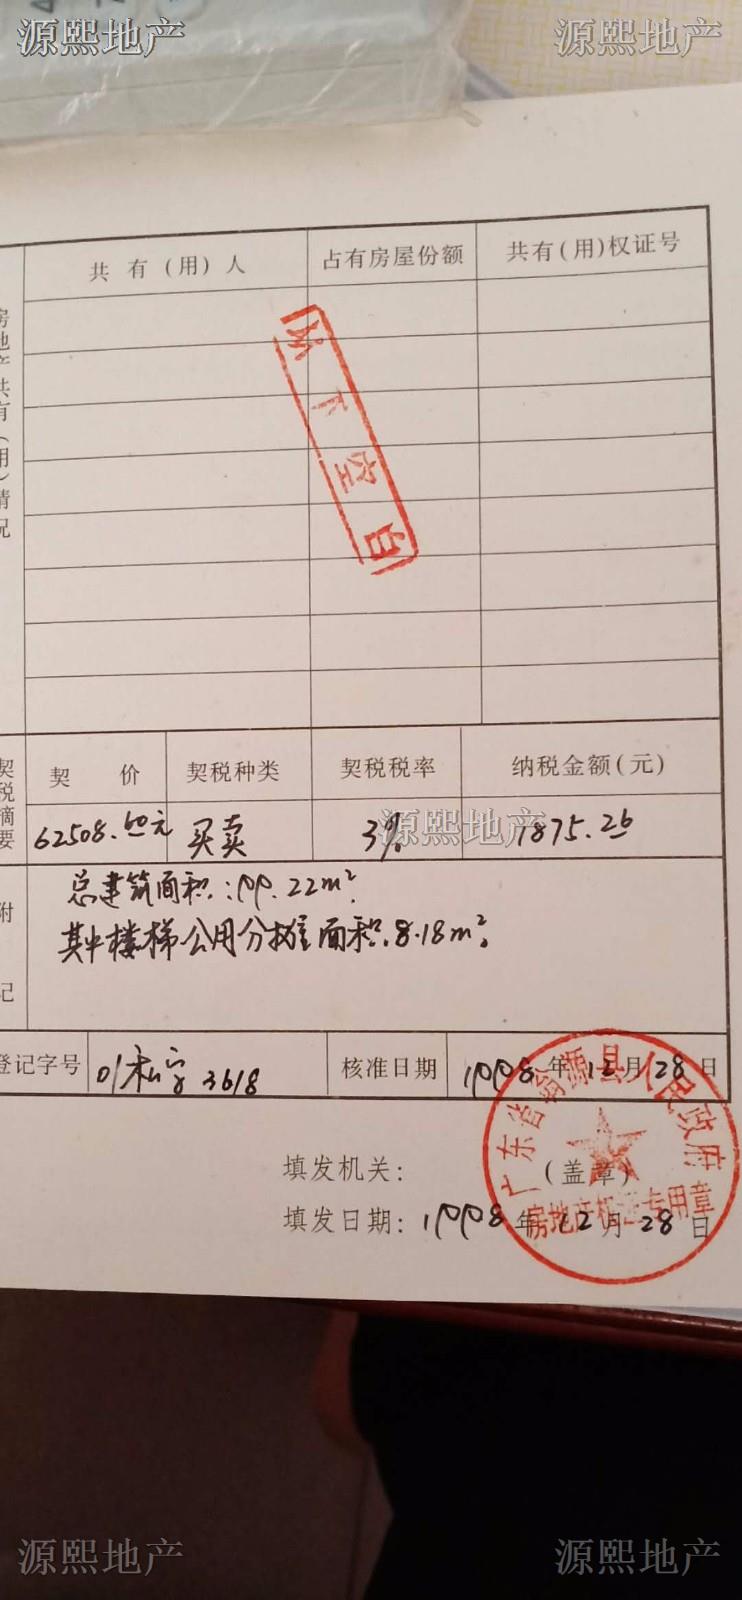 源熙地产 源熙地产
共有(用)人 占有房屋份额 共有(用)权证号
房地产共有(用)情况
以下空白
契税摘要
契价 契税种类 契税税率 纳税金额(元)
62508.60元 买卖 3% 1875.26
源熙地产
附记
总建筑面积:99.22m².
其中楼梯公用分摊面积.8.18m².
登记字号 01私字3618 核准日期 1998年12月28日
填发机关: (盖章)
填发日期: 1998年12月28日
广东省翁源县人民政府
房地产权证专用章
源熙地产 源熙地产